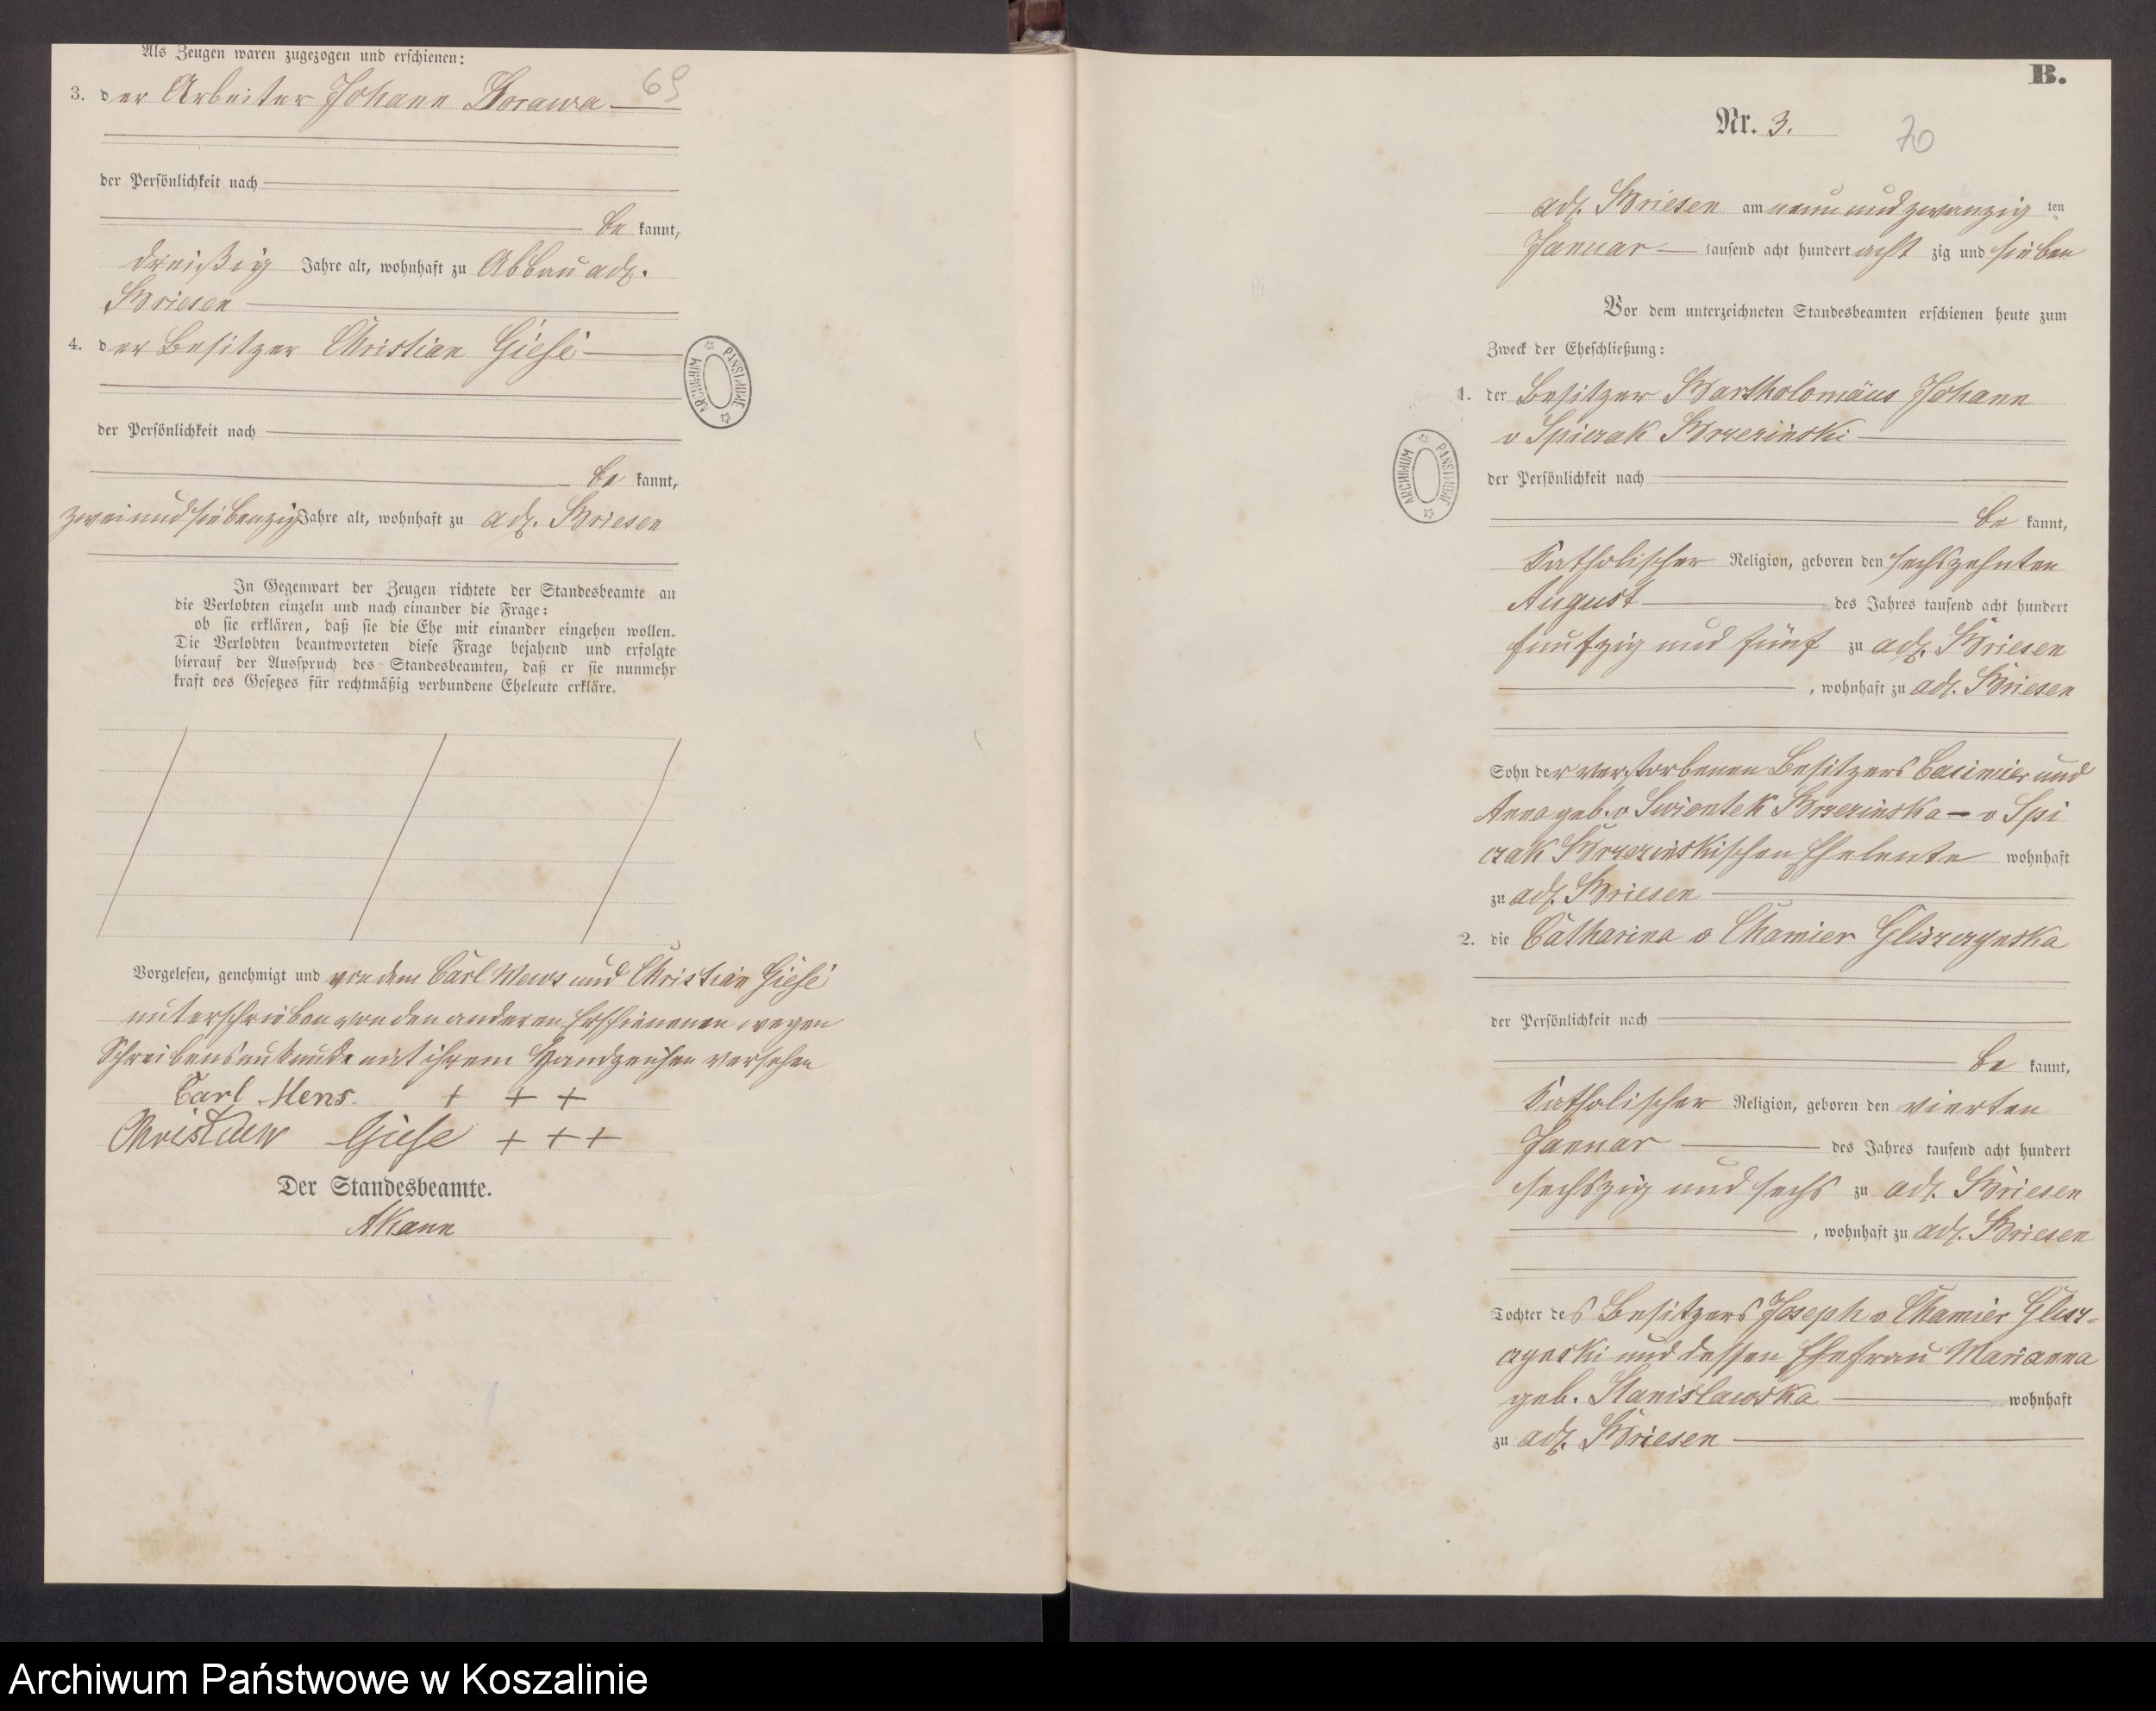 Als Zeugen waren zugezogen und erschienen:
69
3. der Arbeiter Johann Borawa
der Persönlichkeit nach
be kannt,
dreißig Jahre alt, wohnhaft zu Abbau adl.
Briesen
4. der Besitzer Christian Giese
der Persönlichkeit nach
be kannt,
zweiundsiebenzig Jahre alt, wohnhaft zu adl. Briesen
In Gegenwart der Zeugen richtete der Standesbeamte an
die Verlobten einzeln und nach einander die Frage:
ob sie erklären, daß sie die Ehe mit einander eingehen wollen.
Die Verlobten beantworteten diese Frage bejahend und erfolgte
hierauf der Ausspruch des Standesbeamten, daß er sie nunmehr
kraft des Gesetzes für rechtmäßig verbundene Eheleute erkläre.
Vorgelesen, genehmigt und von dem Carl Mews und Christian Giese
unterschrieben von den anderen Erschienenen wegen
Schreibensunkunde mit ihrem Handzeichen versehen
Carl Mens + + +
Christian Giese + + +
Der Standesbeamte.
AKann
ARCHIWUM PAŃSTWOWE
B.
Nr. 3.
70
adl. Briesen am neun und zwanzig ten
Januar tausend acht hundert acht zig und sieben
Vor dem unterzeichneten Standesbeamten erschienen heute zum
Zweck der Eheschließung:
1. der Besitzer Bartholomäus Johann
v Spiczak Brzezinski
der Persönlichkeit nach
be kannt,
Katholischer Religion, geboren den sechszehnten
August des Jahres tausend acht hundert
fünfzig und fünf zu adl. Briesen
, wohnhaft zu adl. Briesen
Sohn der verstorbenen Besitzers Casimier und
Anna geb. v Swientek Brzezinska - v Spi
czak Brzezinskischen Eheleute wohnhaft
zu adl. Briesen
2. die Catharina v Chamier Gliszczynska
der Persönlichkeit nach
be kannt,
Katholischer Religion, geboren den vierten
Januar des Jahres tausend acht hundert
sechszig und sechs zu adl. Briesen
, wohnhaft zu adl. Briesen
Tochter des Besitzers Joseph v Chamier Glisz-
czynski und dessen Ehefrau Marianna
geb. Stanislawska wohnhaft
zu adl. Briesen
ARCHIWUM PAŃSTWOWE
Archiwum Państwowe w Koszalinie